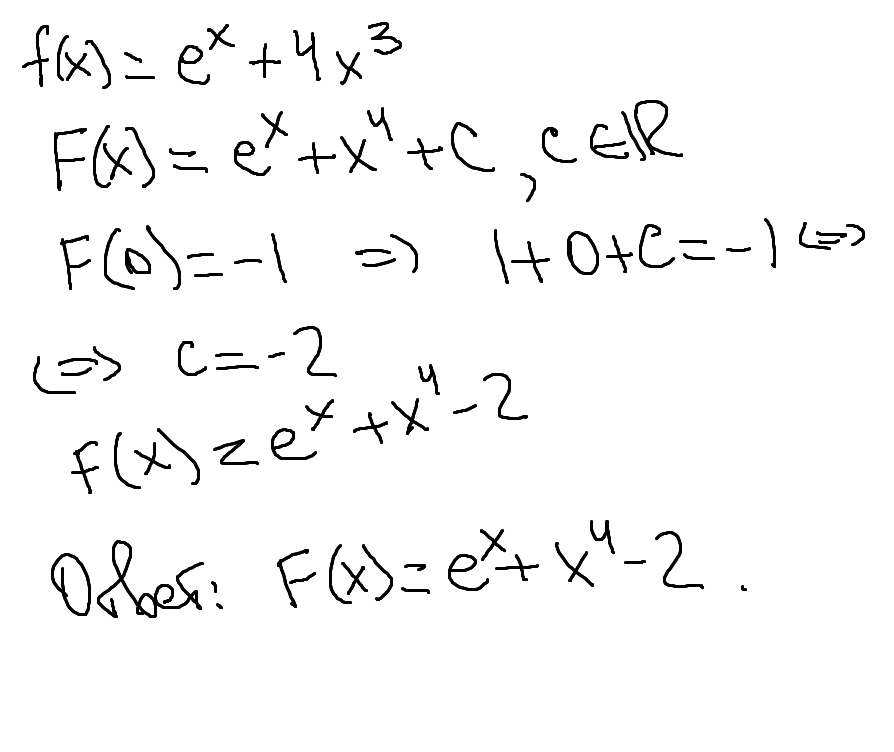 f(x) = e^x + 4x^3
F(x) = e^x + x^4 + C, C ∈ ℝ
F(0) = -1 => 1 + 0 + C = -1 <=>
<=> C = -2
F(x) = e^x + x^4 - 2
Ответ: F(x) = e^x + x^4 - 2.